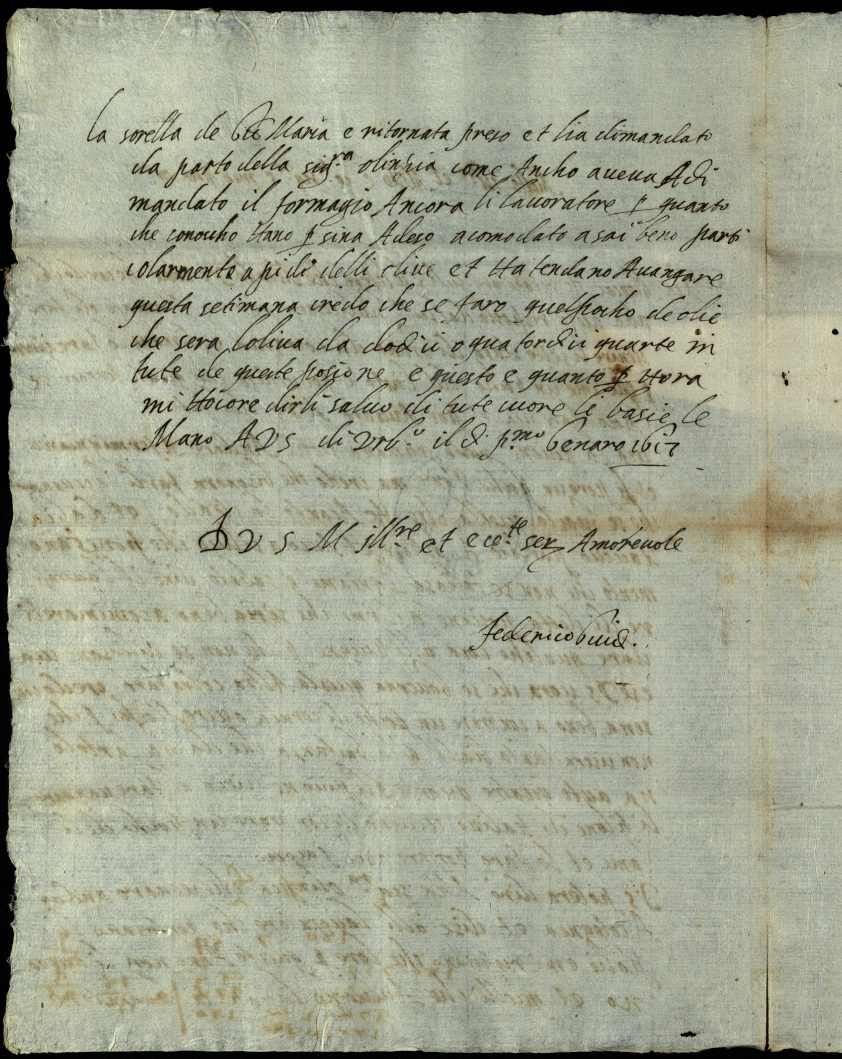 la sorella de Maria e ritornata preso et lia dimandato
da parto della sig.ra olinpia come Ancho aveva Adi
mandato il formagio Ancora li lavoratore p quanto
che conoscho stano p sina Adeso acomodato asai beno parti
colarmente a pi di delli olive et ttatendano Avangare
questa setimana credo che se faro quel pocho de olie
che sera loliva da dodici o quatordici quarte in
tute de queste posione e questo e quanto p ttora
mi ttocore dirli salvo di tute cuore le bascie le
Mano A V S di Urb.o il di p.mo Genaro 1617
D V S M Ill.re et ece.te ser Amorevole
Federico